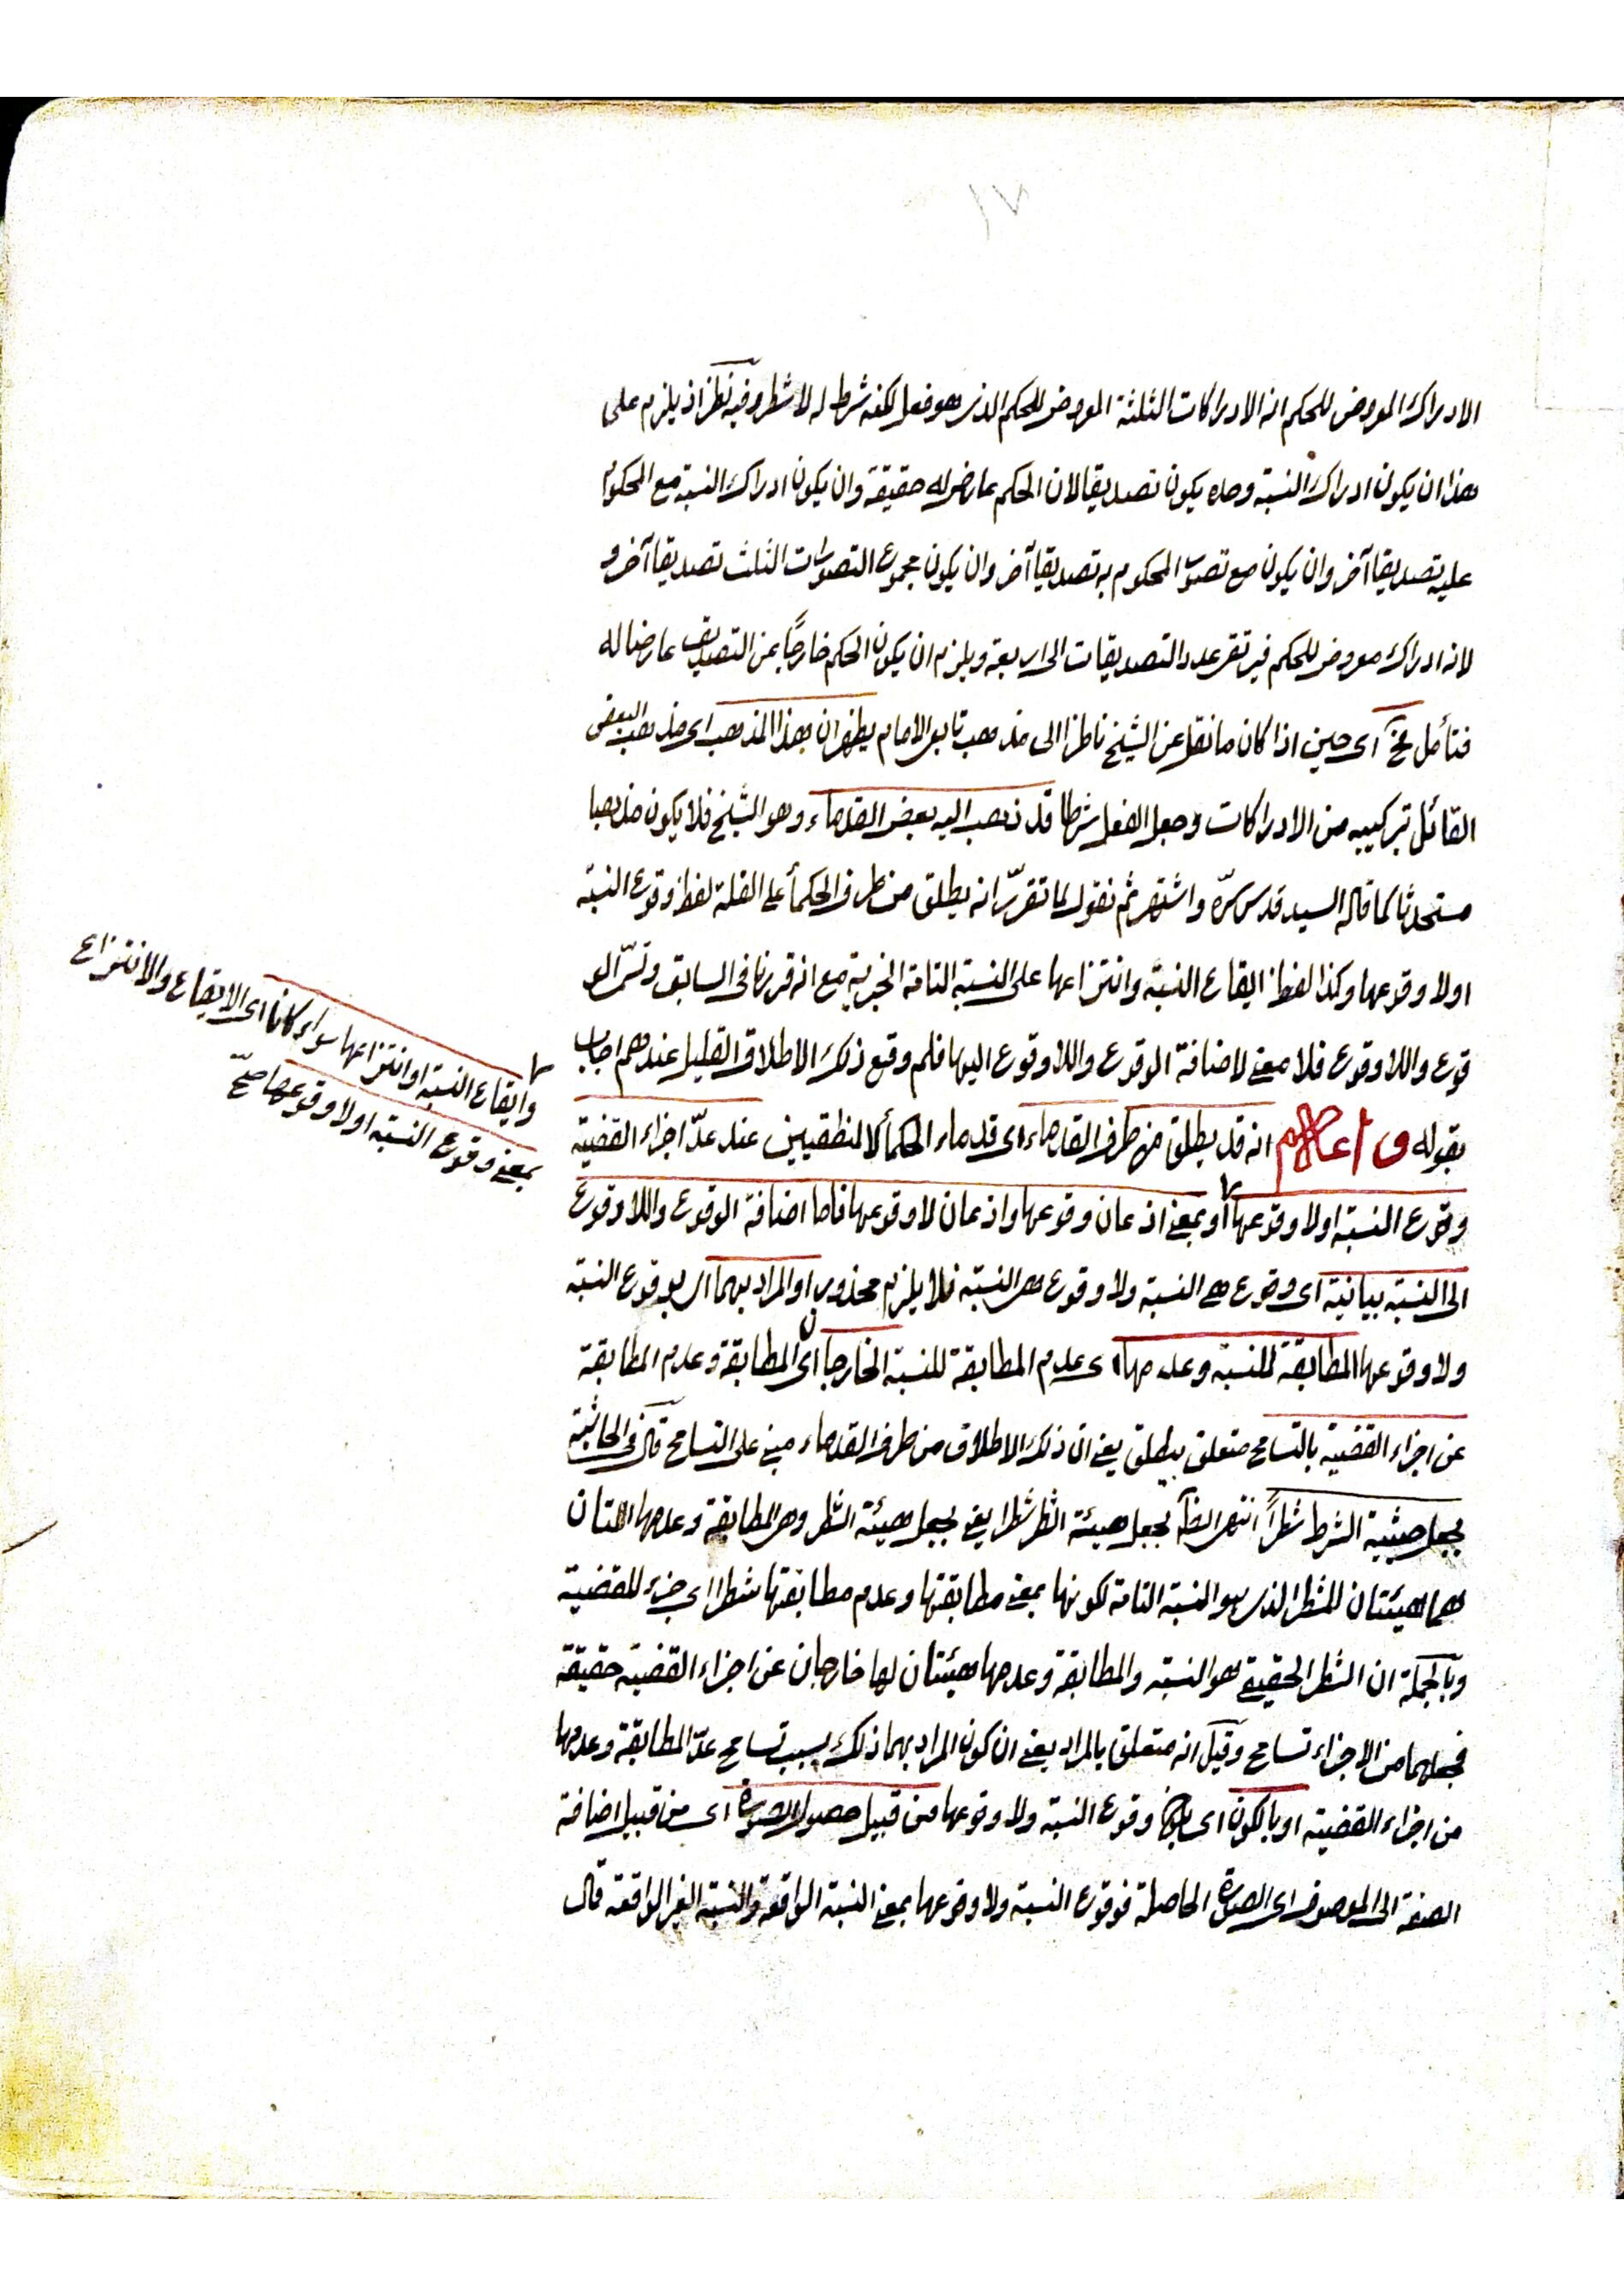 ١٧
الادراك المعروض للحكم انه الادراكات الثلثة المعروض للحكم الذى هو فعل لكنه شرط له لا شطر وفيه نظر اذ يلزم على
هذا ان يكون ادراك النسبة وحده يكون تصديقا لان الحكم عارض له حقيقة وان يكون ادراك النسبة مع المحكوم
عليه تصديقا آخر وان يكون مع تصور المحكوم به تصديقا آخر وان يكون مجموع التصورات الثلث تصديقا آخر و
لانه ادراك معروض للحكم فيرتقى عدد التصديقات الى اربعة ويلزم ان يكون الحكم خارجًا عن التصديق عارضا له
فتأمل فح آى حين اذا كان ما نقل عن الشيخ ناظرا الى مذهب تابع الامام يظهر ان هذا المذهب اى مذهب البعض
القائل بتركيبه من الادراكات وجعل الفعل شرطا قد ذهب اليه بعض القدماء وهو الشيخ فلا يكون مذهبا
مستحدثا كما قاله السيد قدس سرّه واشتهر ثم نقول لما تقرّر انه يطلق من طرف الحكمأ على القلة لفظ وقوع النسبة
اولا وقوعها وكذا لفظ ايقاع النسبة وانتزاعها على النسبة التامة الخبرية مع انه قررنا فى السابق وتسّر الو
قوع واللا وقوع فلا معنى لاضافة الوقوع واللا وقوع اليها فلم وقع ذلك الاطلاق القليل عندهم اجاب
بقوله واعلم انه قد يطلق من طرف القدماء اى قدماء الحكمأ لا المنطقيين عند عدّ اجزاء القضية
وقوع النسبة اولا وقوعها او بمعنى اذعان وقوعها واذعان لا وقوعها فاما اضافة الوقوع واللا وقوع
الى النسبة بيانية اى وقوع هى النسبة ولا وقوع هى النسبة فلا يلزم محذور او المراد بهما اى بوقوع النسبة
ولا وقوعها المطابقة للنسبة وعدمها اى عدم المطابقة للنسبة الخارجان اى المطابقة وعدم المطابقة
عن اجزاء القضية بالتسامح متعلق بيطلق يعنى ان ذلك الاطلاق من طرف القدماء مبنى على التسامح قال فى الحاشية
بجعل حيثية الشرط شطرًا انتهى ايضا بجعل هيئة الشطر شطرا يعنى بجعل هيئة الشطر وهى المطابقة وعدمها اللتان
هما هيئتان للشطر الذى هو النسبة التامة لكونها بمعنى مطابقتها وعدم مطابقتها شطرا اى جزء للقضية
وبالجملة ان الشطر الحقيقى هو النسبة والمطابقة وعدمها هيئتان لها خارجان عن اجزاء القضية حقيقة
فجعلهما من الاجزاء تسامح وقيل انه متعلق بالمراد يعنى ان كون المراد بهما ذلك بسبب تسامح عدّ المطابقة وعدمها
من اجزاء القضية او بالكون اى وقوع النسبة ولا وقوعها من قبيل حصول الصورة اى من قبيل اضافة
الصفة الى الموصوف اى الصورة الحاصلة فوقوع النسبة ولا وقوعها بمعنى النسبة الواقعة والنسبة الغير الواقعة قال
وايقاع النسبة او انتزاعها سواء كانا اى الايقاع والانتزاع
بمعنى وقوع النسبة اولا وقوعها صحّ